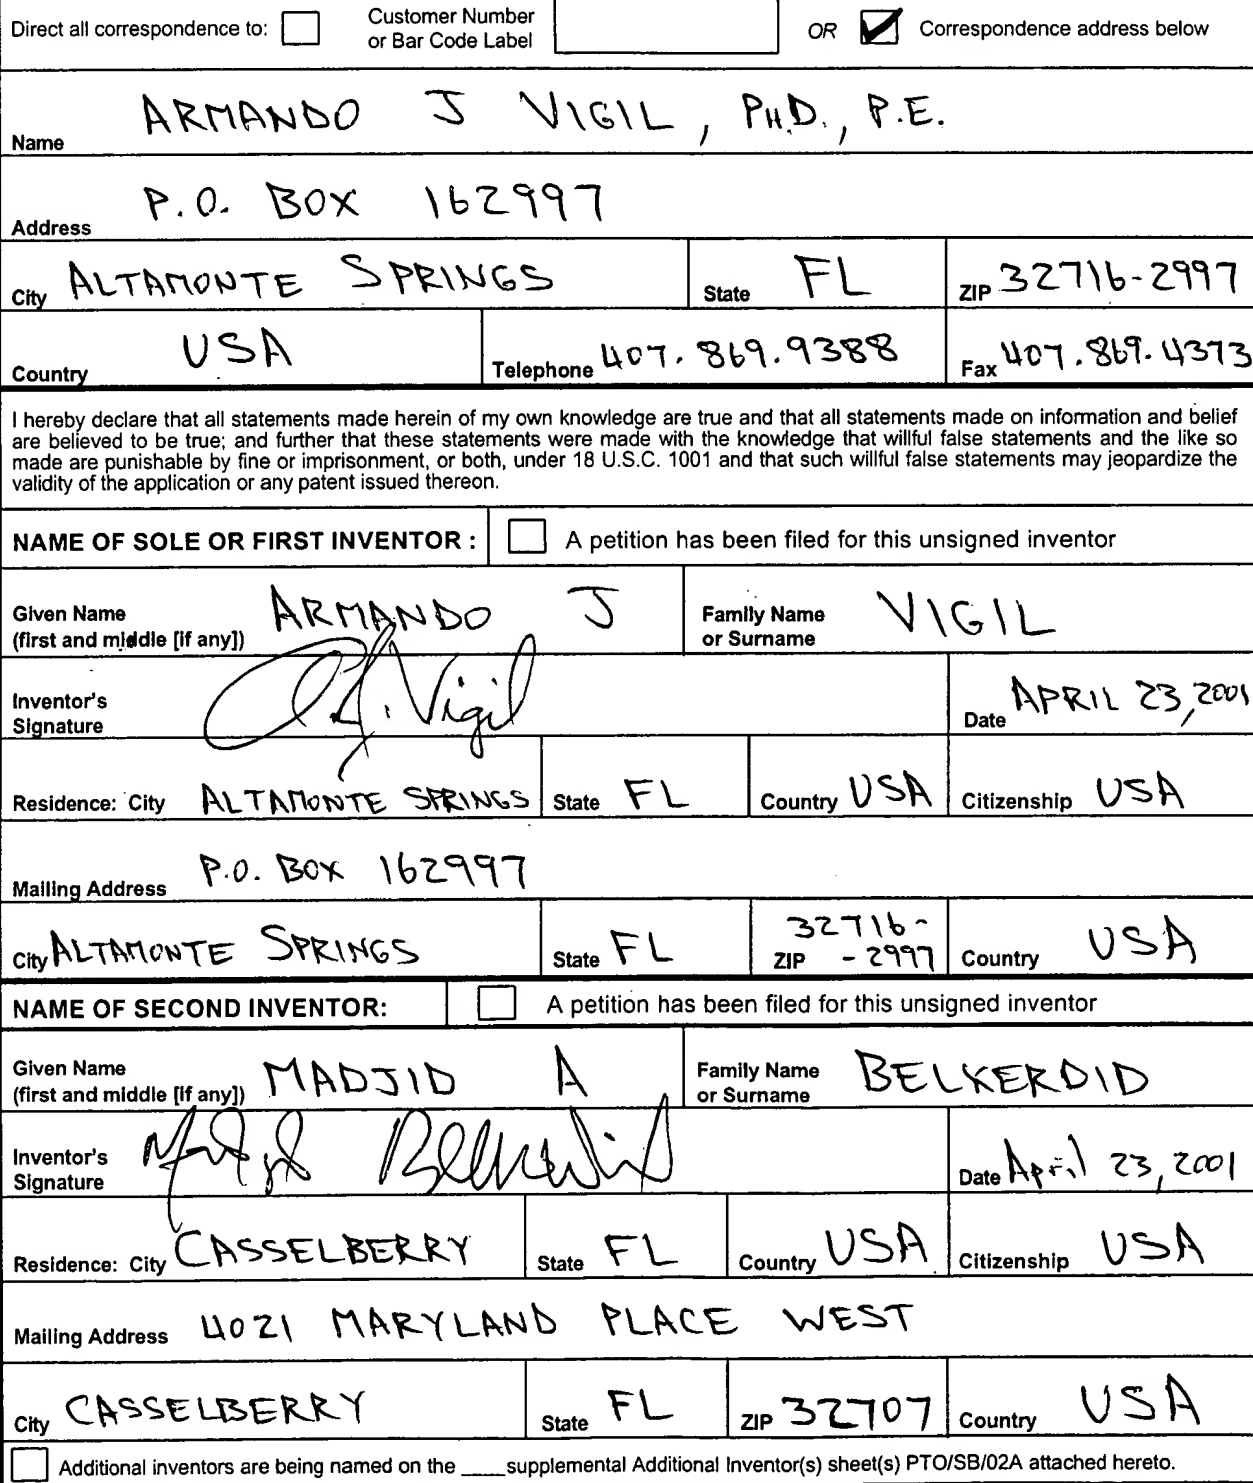 Direct all correspondence to: Customer Number or Bar Code Label OR Correspondence address below
Name ARMANDO J VIGIL, PH.D., P.E.
Address P.O. BOX 162997
City ALTAMONTE SPRINGS State FL ZIP 32716-2997
Country USA Telephone 407.869.9388 Fax 407.869.4373
I hereby declare that all statements made herein of my own knowledge are true and that all statements made on information and belief
are believed to be true; and further that these statements were made with the knowledge that willful false statements and the like so
made are punishable by fine or imprisonment, or both, under 18 U.S.C. 1001 and that such willful false statements may jeopardize the
validity of the application or any patent issued thereon.
NAME OF SOLE OR FIRST INVENTOR : A petition has been filed for this unsigned inventor
Given Name (first and middle [if any]) ARMANDO J Family Name or Surname VIGIL
Inventor's Signature A J. Vigil Date APRIL 23, 2001
Residence: City ALTAMONTE SPRINGS State FL Country USA Citizenship USA
Mailing Address P.O. BOX 162997
City ALTAMONTE SPRINGS State FL ZIP 32716- -2997 Country USA
NAME OF SECOND INVENTOR: A petition has been filed for this unsigned inventor
Given Name (first and middle [if any]) MADJID A Family Name or Surname BELKERDID
Inventor's Signature Madjid Belkerdid Date April 23, 2001
Residence: City CASSELBERRY State FL Country USA Citizenship USA
Mailing Address 4021 MARYLAND PLACE WEST
City CASSELBERRY State FL ZIP 32707 Country USA
Additional inventors are being named on the ____supplemental Additional Inventor(s) sheet(s) PTO/SB/02A attached hereto.